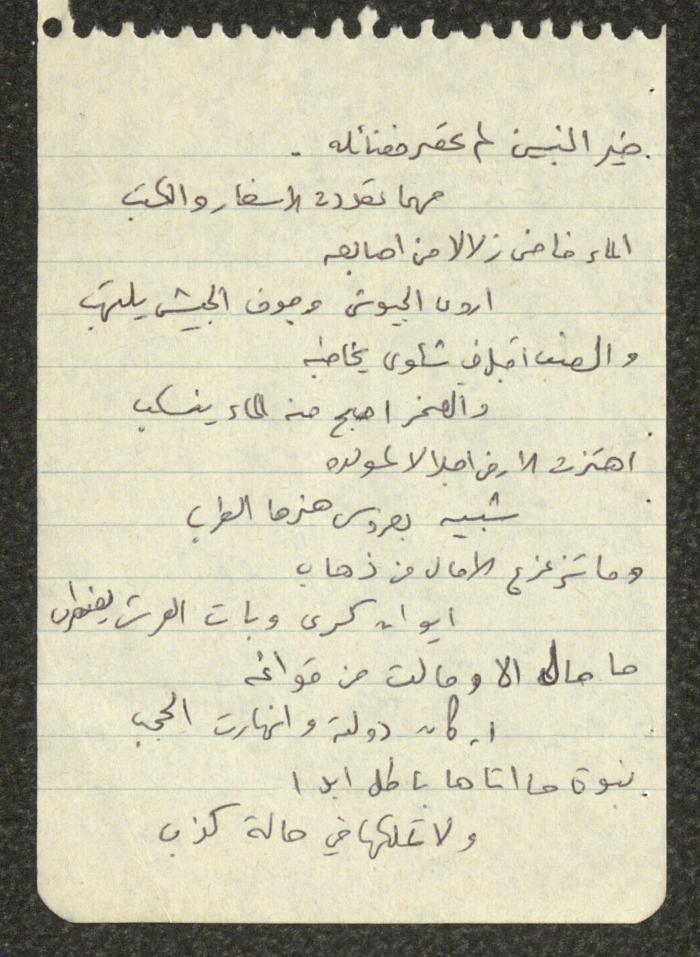 خير النبيين لم تحصر فضائله
مهما تعددت الاسفار والكتب
الماء فاض زلالا من اصابعه
اروى الجيوش وجوف الجيش يلتهب
والضب اقبل في شكوى يخاطبه
والصخر اصبح منه الماء ينسكب
اهتزت الارض اجلالا لمولده
شبيه بعروس هزها الطرب
وما تزعزع الامال من ذهاب
ايوان كسرى وبات العرش يضطرب
ما مال الا ومالت من قوائمه
اركان دولة وانهارت الحجب
نبوة ما اتاها باطل ابدا
ولا في حالة كذب